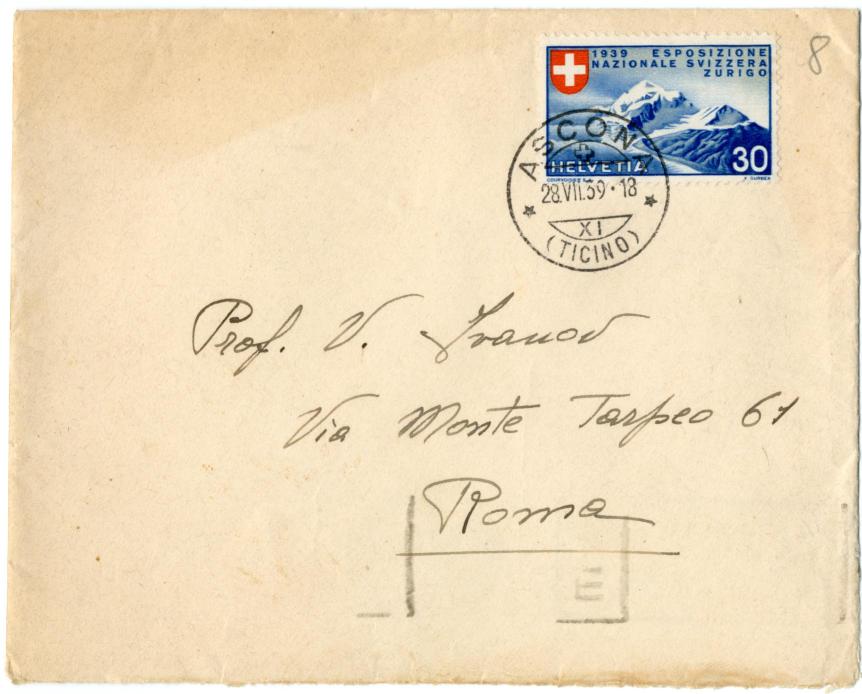 8
1939 ESPOSIZIONE
NAZIONALE SVIZZERA
ZURIGO
HELVETIA 30
COURVOISIER S.A.
ASCONA
28.VII.39·18
XI
(TICINO)
Prof. V. Ivanov
Via Monte Tarpeo 61
Roma
E